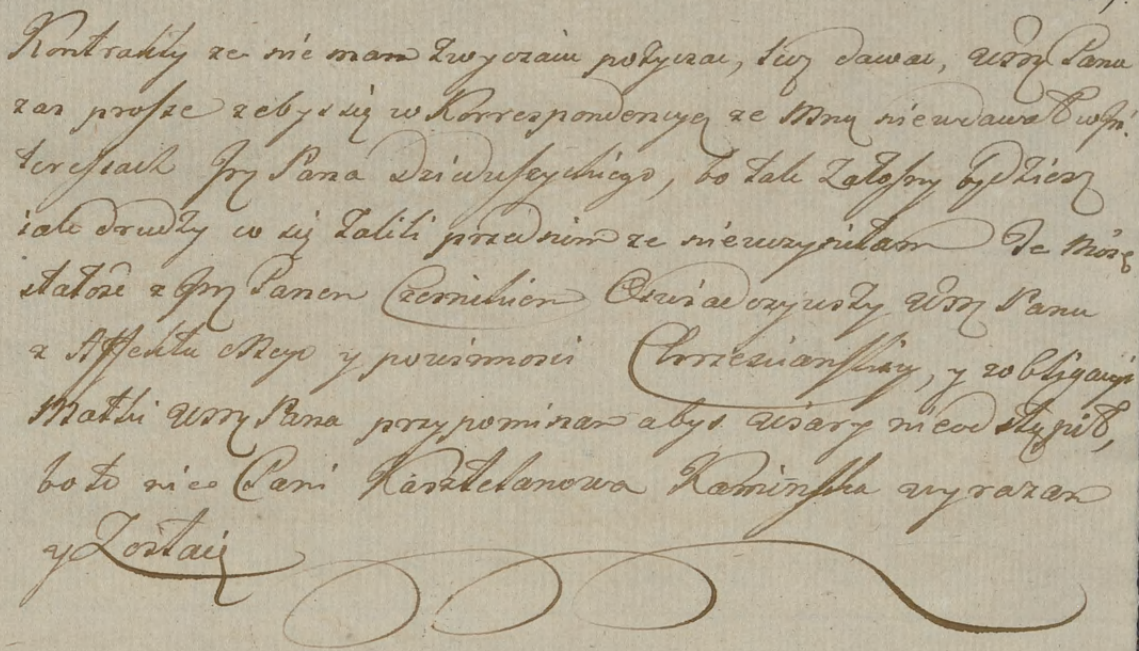 Kontrakty ze nie mam zwyczaiu pożyczac, lecz dawac, Panu
zas prosze zebys się w Korrespondencyą ze Mną niewdawał w In-
teressach Pana Dzieduszyckiego, bo tak Załosny będziesz
iak drudzy co się żalili przednim ze nieuczyniłam
z Panem Oswiadczywszy Panu
z Affektu Mego y powinnosci Chrzescianskiey, y zobligacyi
Matki Pana przypominam abys wiary nieodstąpił,
bo to nie Pani Kasztelanowa Kaminska wyrazam
y Zostaię